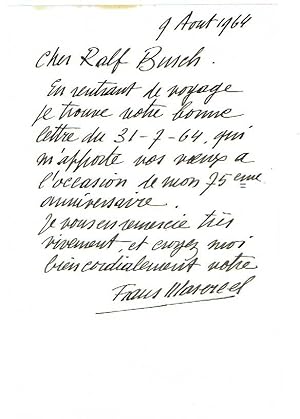 9 Aout 1964
Cher Ralf Busch.
En rentrant de voyage
je trouve votre bonne
lettre du 31-7-64, qui
m'apporte vos vœux a
l'occasion de mon 75 eme
anniversaire.
Je vous en remercie très
vivement, et croyez moi
bien cordialement votre
Frans Masereel